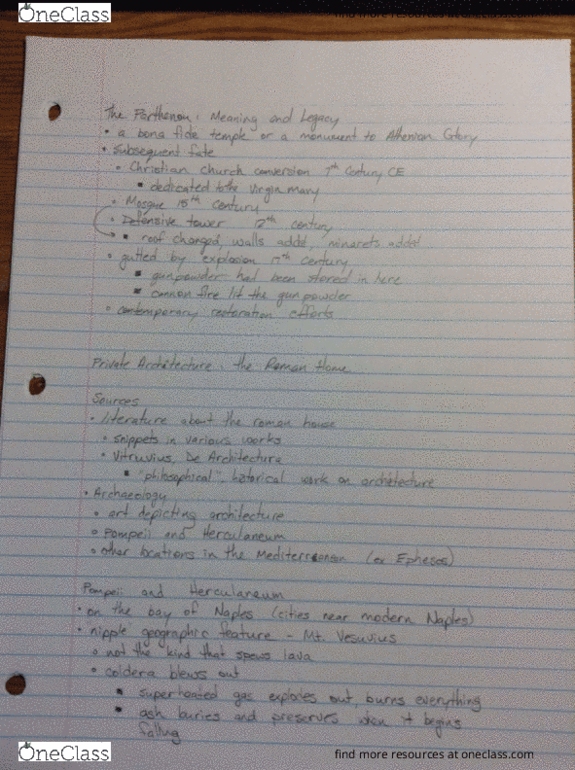 OneClass
find more resources at oneclass.com
The Parthenon: Meaning and Legacy
• a bona fide temple or a monument to Athenian Glory
• subsequent fate
• Christian church conversion 7th Century CE
▪ dedicated to the virgin mary
• Mosque 15th Century
• Defensive tower 12th century
▪ roof changed, walls addd, minarets addd
• gutted by explosion 17th century
▪ gunpowder had been stored in here
▪ cannon fire lit the gunpowder
• contemporary restoration efforts
Private Architecture - the Roman Home
Sources
• literature about the roman house
• snippets in various works
• Vitruvius, De Architectura
▪ "philosophical", historical work on architecture
• Archaeology
• art depicting architecture
• Pompeii and Herculaneum
• other locations in the Mediterranean (ex Ephesos)
Pompeii and Herculaneum
• on the bay of Naples (cities near modern Naples)
• nipple geographic feature - Mt. Vesuvius
• not the kind that spews lava
• caldera blows out
▪ superheated gas explodes out, burns everything
▪ ash buries and preserves when it begins
falling
OneClass
find more resources at oneclass.com